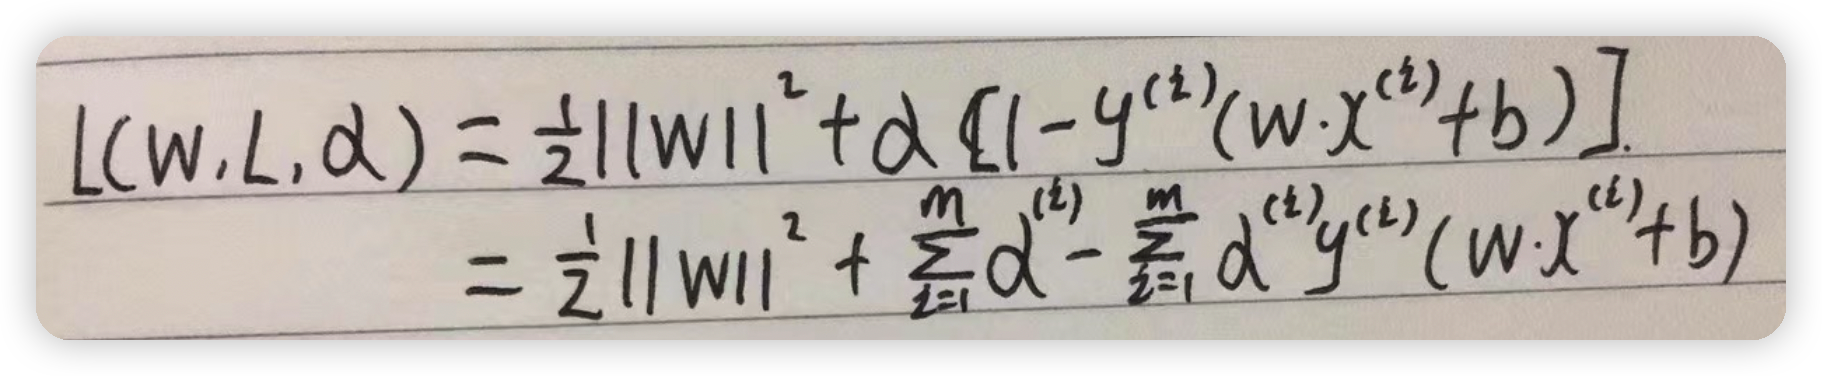 L(w,L,α) = ½||w||² + α[1-y⁽ⁱ⁾(w·x⁽ⁱ⁾+b)].
= ½||w||² + ∑ᵢ₌₁ᵐ α⁽ⁱ⁾ - ∑ᵢ₌₁ᵐ α⁽ⁱ⁾y⁽ⁱ⁾(w·x⁽ⁱ⁾+b)